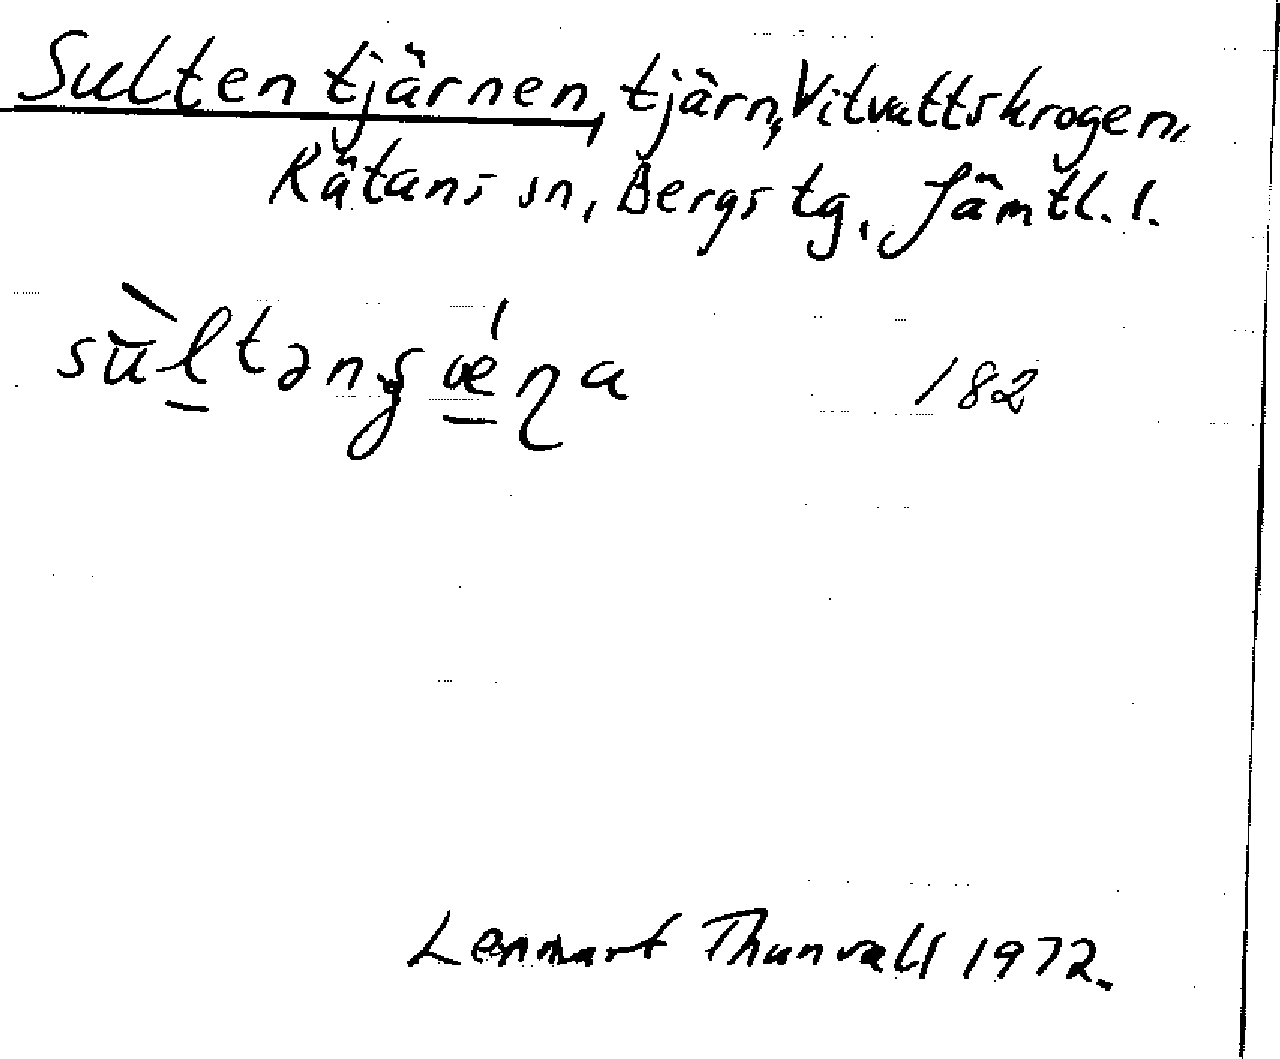 Sultentjärnen, tjärn, Vitvattskrogen,
Rätans sn, Bergs tg. Jämtl. l.
182
Lennart Thunvall 1972.